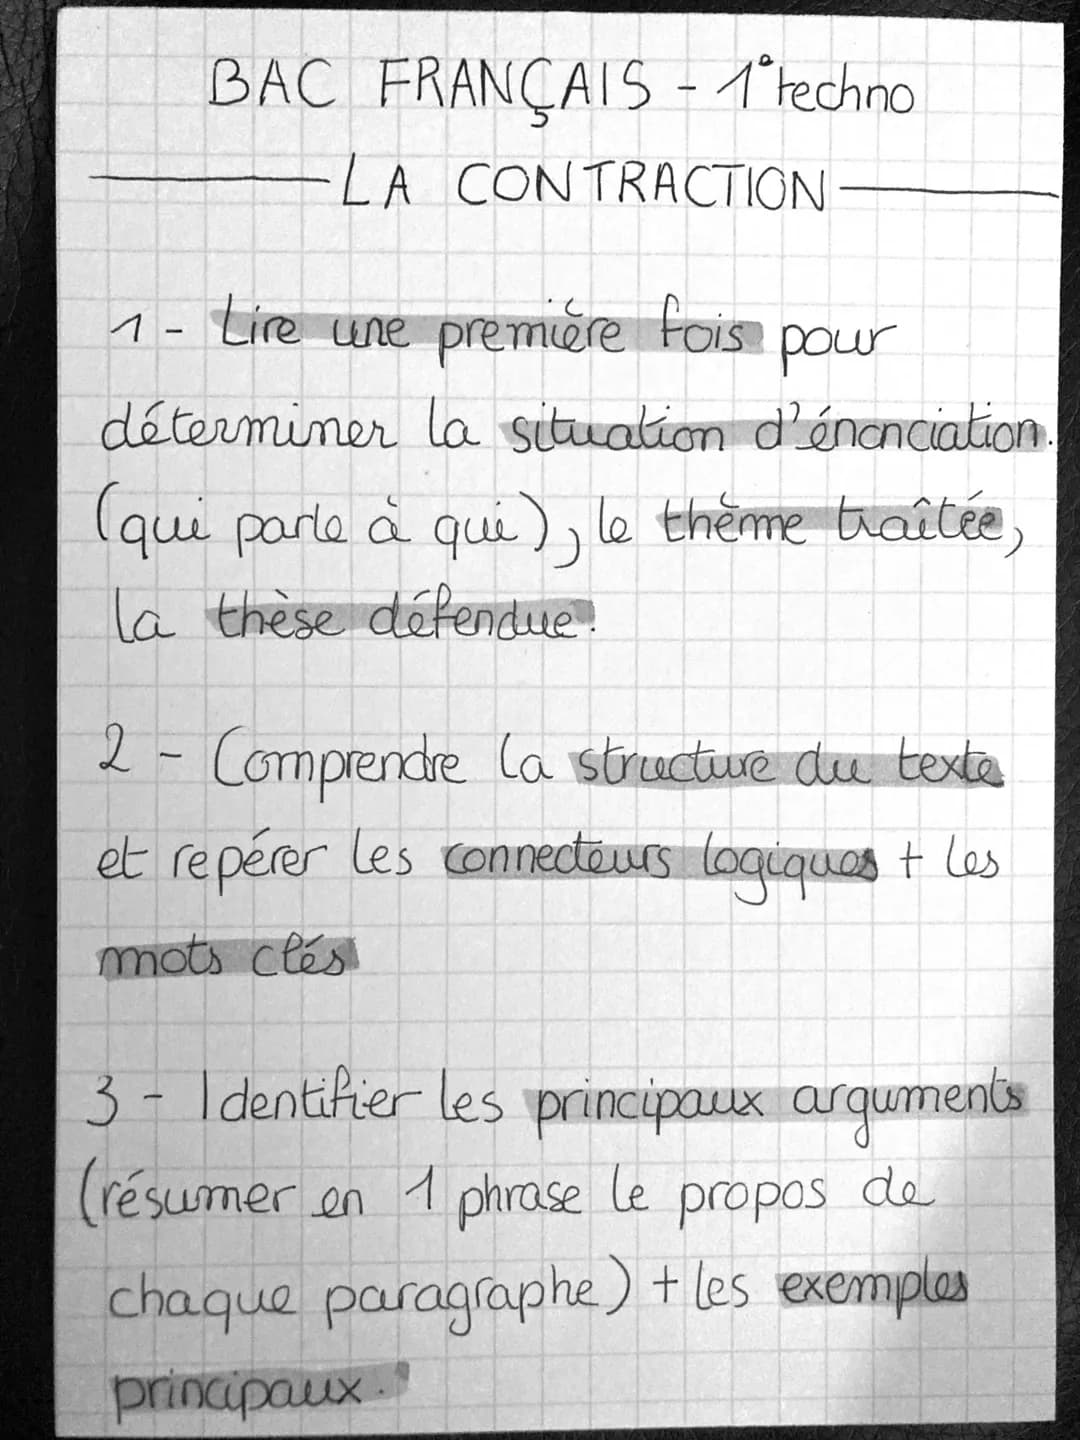 BAC FRANÇAIS - 1° techno
LA CONTRACTION
1 - Lire une première fois pour
déterminer la situation d'énonciation.
(qui parle à qui), le thème traîtée,
la thèse défendue.
2 - Comprendre la structure du texte
et repérer les connecteurs logiques + les
mots clés
3 - Identifier les principaux arguments
(résumer en 1 phrase le propos de
chaque paragraphe) + les exemples
principaux.